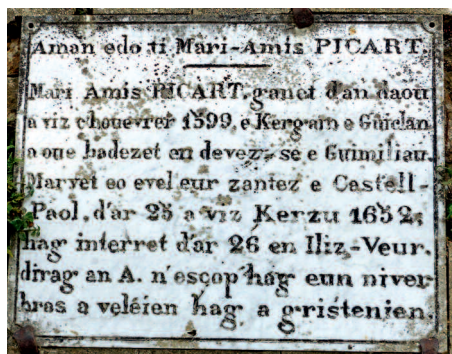 Aman edo ti Mari-Amis PICART.
Mari Amis PICART, ganet d'an daou
a viz c'houevrer 1599, e Kergam e Guiclan
a oue badezet en devez-se e Guimiliau.
Marvet eo evel eur zantez e Castell-
Paol, d'ar 25 a viz Kerzu 1652,
hag interret d'ar 26 en Iliz-Veur,
dirag an A. n'escop hag eun niver
bras a veléien hag a gristenien.